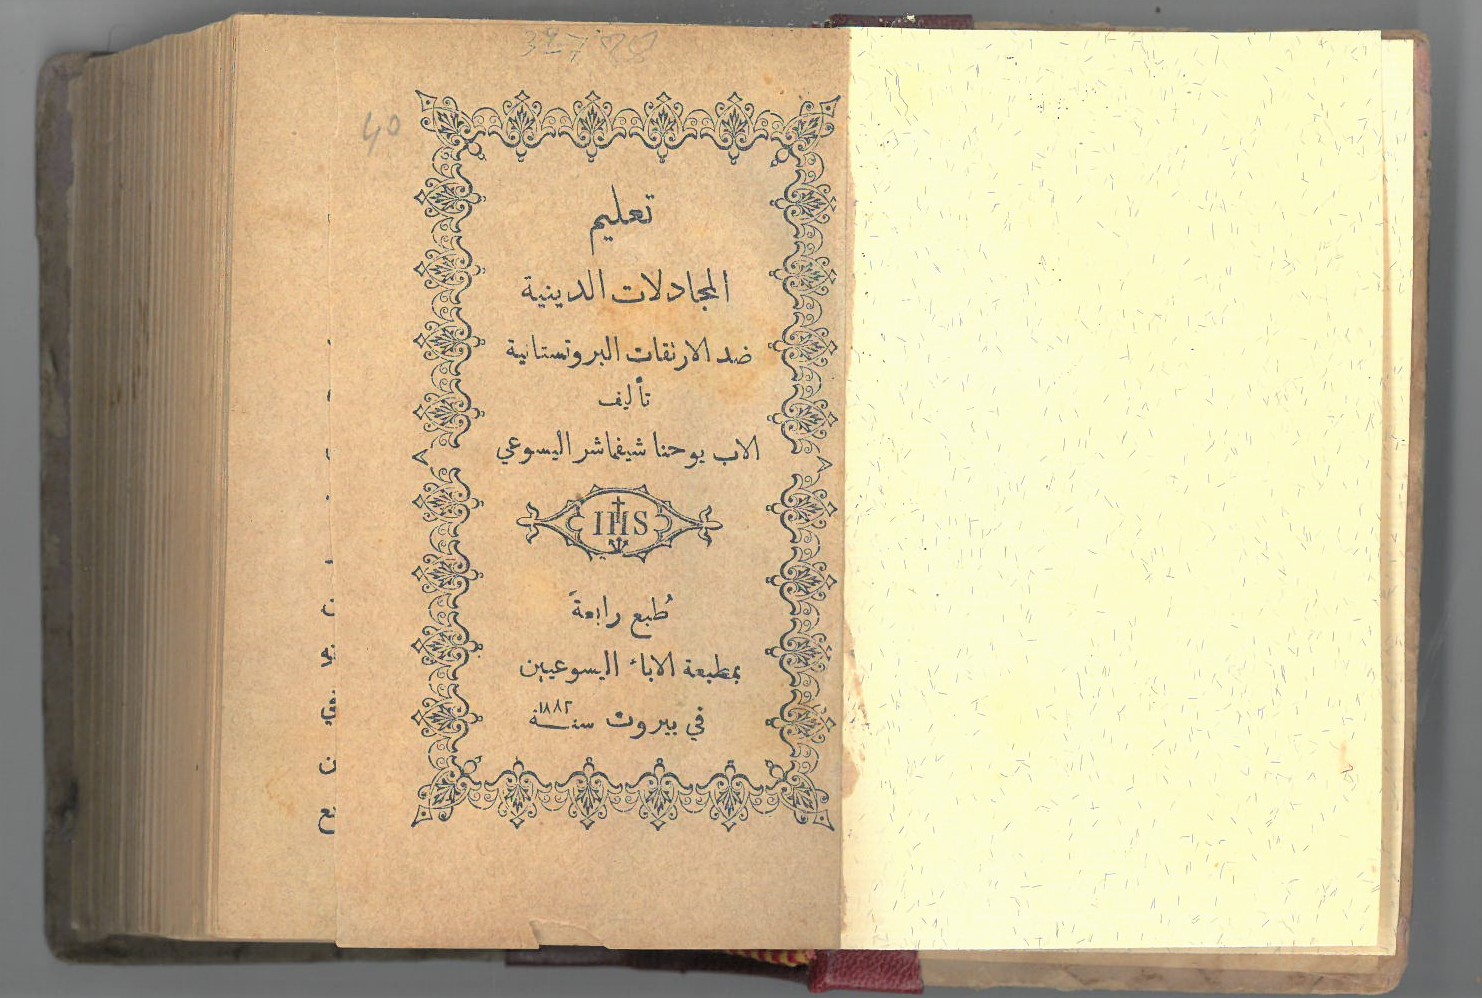 تعليم
المجادلات الدينية
ضد الارثقات البروتستانية
تأليف
الاب يوحنا شيفماشر اليسوعي
IHS
طُبع رابعةً
بمطبعة الاباء اليسوعيين
في بيروت سنة ١٨٨٢
40